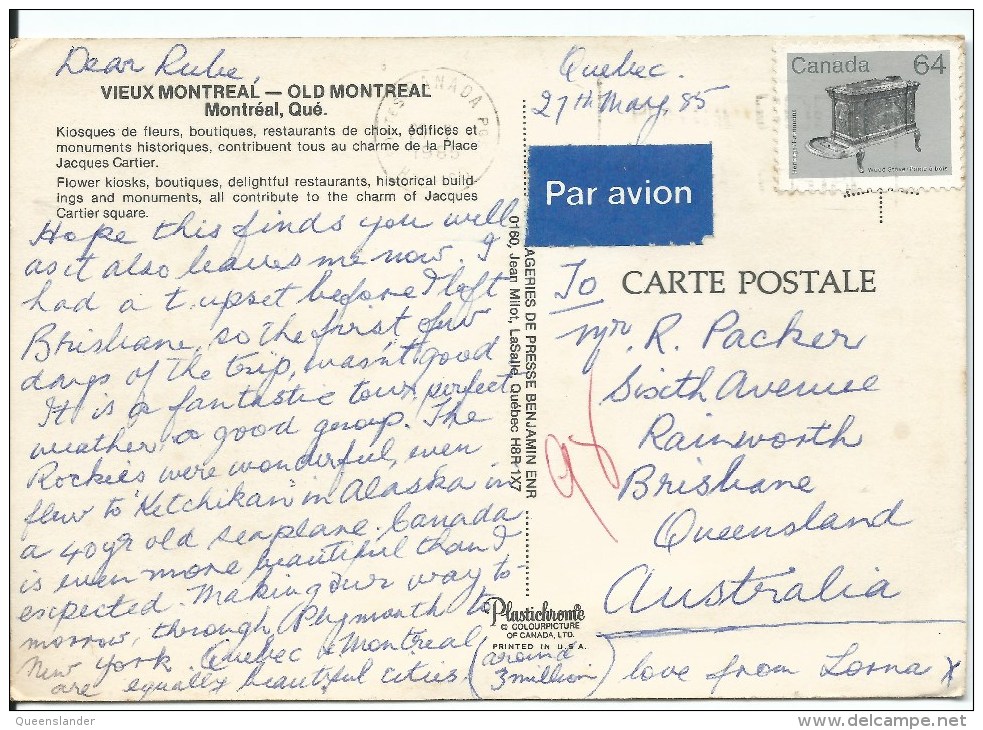 Dear Rube,
VIEUX MONTREAL — OLD MONTREAL
Montréal, Qué.
Kiosques de fleurs, boutiques, restaurants de choix, édifices et
monuments historiques, contribuent tous au charme de la Place
Jacques Cartier.
Flower kiosks, boutiques, delightful restaurants, historical build-
ings and monuments, all contribute to the charm of Jacques
Cartier square.
Hope this finds you well
as it also leaves me now. I
had a t. upset before I left
Brisbane, so the first few
days of the trip, wasn't good
It is a fantastic tour, perfect
weather, a good group. The
Rockies were wonderful, even
flew to "Ketchikan" in Alaska in
a 40yr old seaplane. Canada
is even more beautiful than I
expected. Making our way to-
morrow, through Plymouth to
New York. Quebec & Montreal
are equally beautiful cities (around
3 million)
love from Lorna X
Quebec.
27th May, 85
Canada 64
CANADA
1985
Par avion
To CARTE POSTALE
Mr. R. Packer
Sixth Avenue
Rainworth
Brisbane
Queensland
Australia
AGERIES DE PRESSE BENJAMIN ENR
0160, Jean Milot, LaSalle, Québec H8R 1X7
Plastichrome
© COLOURPICTURE
OF CANADA, LTD.
PRINTED IN U.S.A.
Queenslander
www.delcampe.net